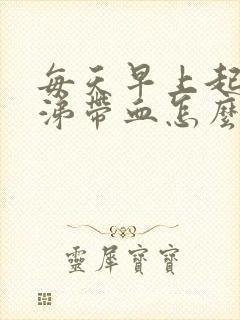 每天早上起
涕带血怎麼
靈犀寶寶